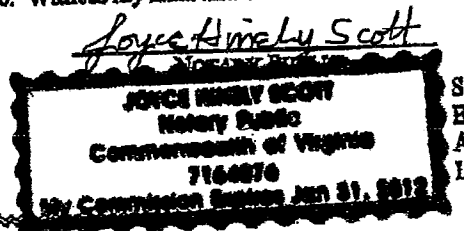 Joyce Hinely Scott
NOTARY PUBLIC
JOYCE HINELY SCOTT
Notary Public
Commonwealth of Virginia
My Commission Expires Jan 31, 2012
S
E
A
L